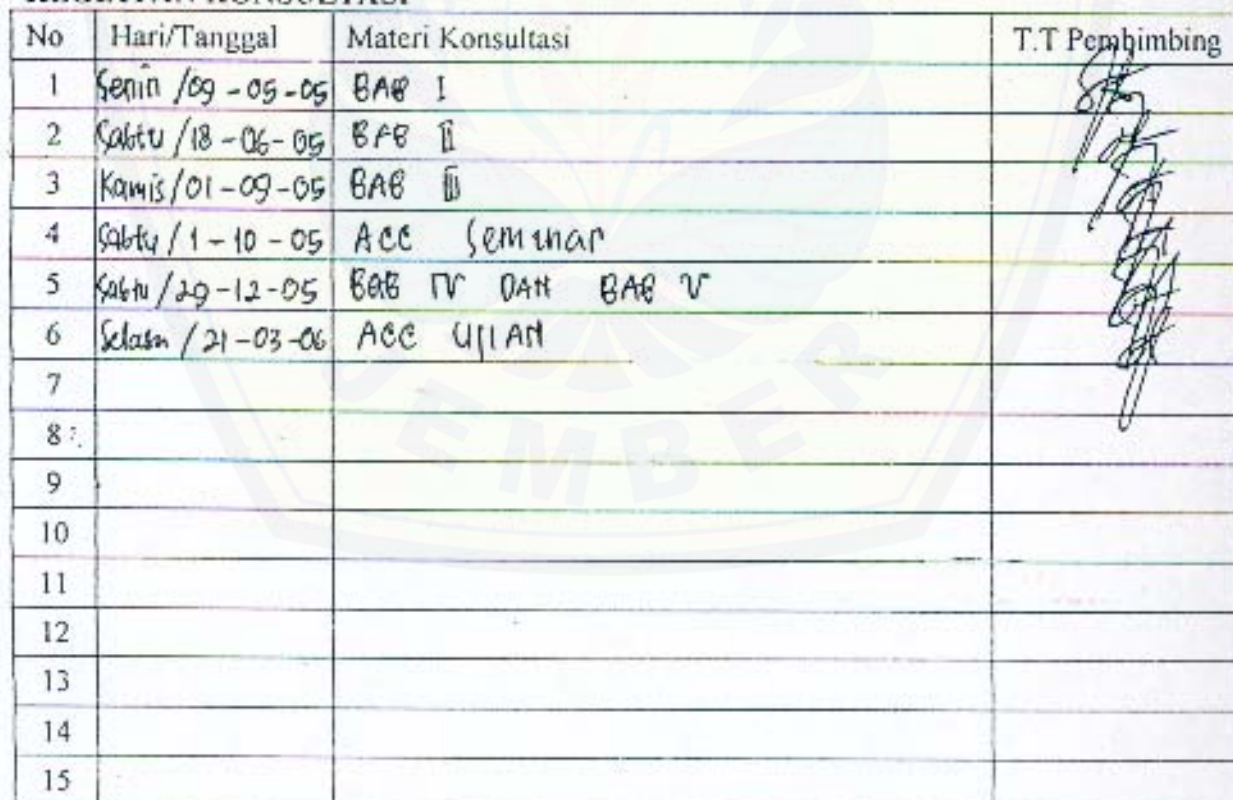 KEGIATAN KONSULTASI
No Hari/Tanggal Materi Konsultasi T.T Pembimbing
1 Senin /09-05-05 BAB I
2 Sabtu /18-06-05 BAB II
3 Kamis/01-09-05 BAB III
4 Sabtu / 1-10-05 ACC Seminar
5 Sabtu /29-12-05 BAB IV DAN BAB V
6 Selasa / 21-03-06 ACC UJIAN
7
8
9
10
11
12
13
14
15
JEMBER